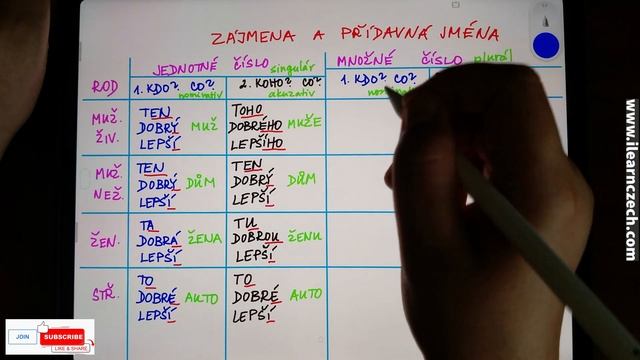 ZÁJMENA A PŘÍDAVNÁ JMÉNA
JEDNOTNÉ ČÍSLO singulár
MNOŽNÉ ČÍSLO plurál
ROD
1. KDO? CO?
nominativ
2. KOHO? CO?
akuzativ
1. KDO? CO?
MUŽ.
ŽIV.
TEN
DOBRÝ MUŽ
LEPŠÍ
TOHO
DOBRÉHO MUŽE
LEPŠÍHO
MUŽ.
NEŽ.
TEN
DOBRÝ DŮM
LEPŠÍ
TEN
DOBRÝ DŮM
LEPŠÍ
ŽEN.
TA
DOBRÁ ŽENA
LEPŠÍ
TU
DOBROU ŽENU
LEPŠÍ
STŘ.
TO
DOBRÉ AUTO
LEPŠÍ
TO
DOBRÉ AUTO
LEPŠÍ
www.ilearnczech.com
JOIN
SUBSCRIBE
LIKE & SHARE